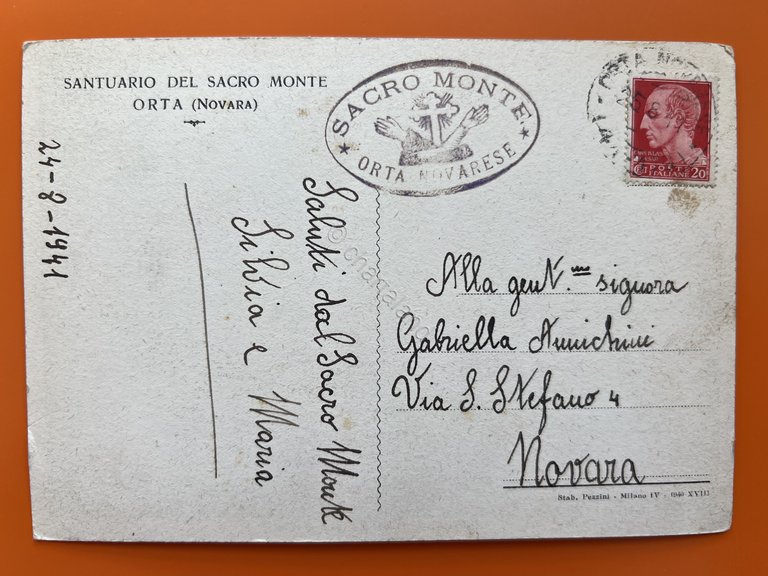 SANTUARIO DEL SACRO MONTE
ORTA (NOVARA)
SACRO MONTE
ORTA NOVARESE
24-8-1941
Saluti dal Sacro Monte
Silvia e Maria
POSTE
ITALIANE
20
Alla gent.ma signora
Gabriella Annichini
Via S. Stefano 4
Novara
Stab. Pezzini - Milano IV - 1940 XVIII